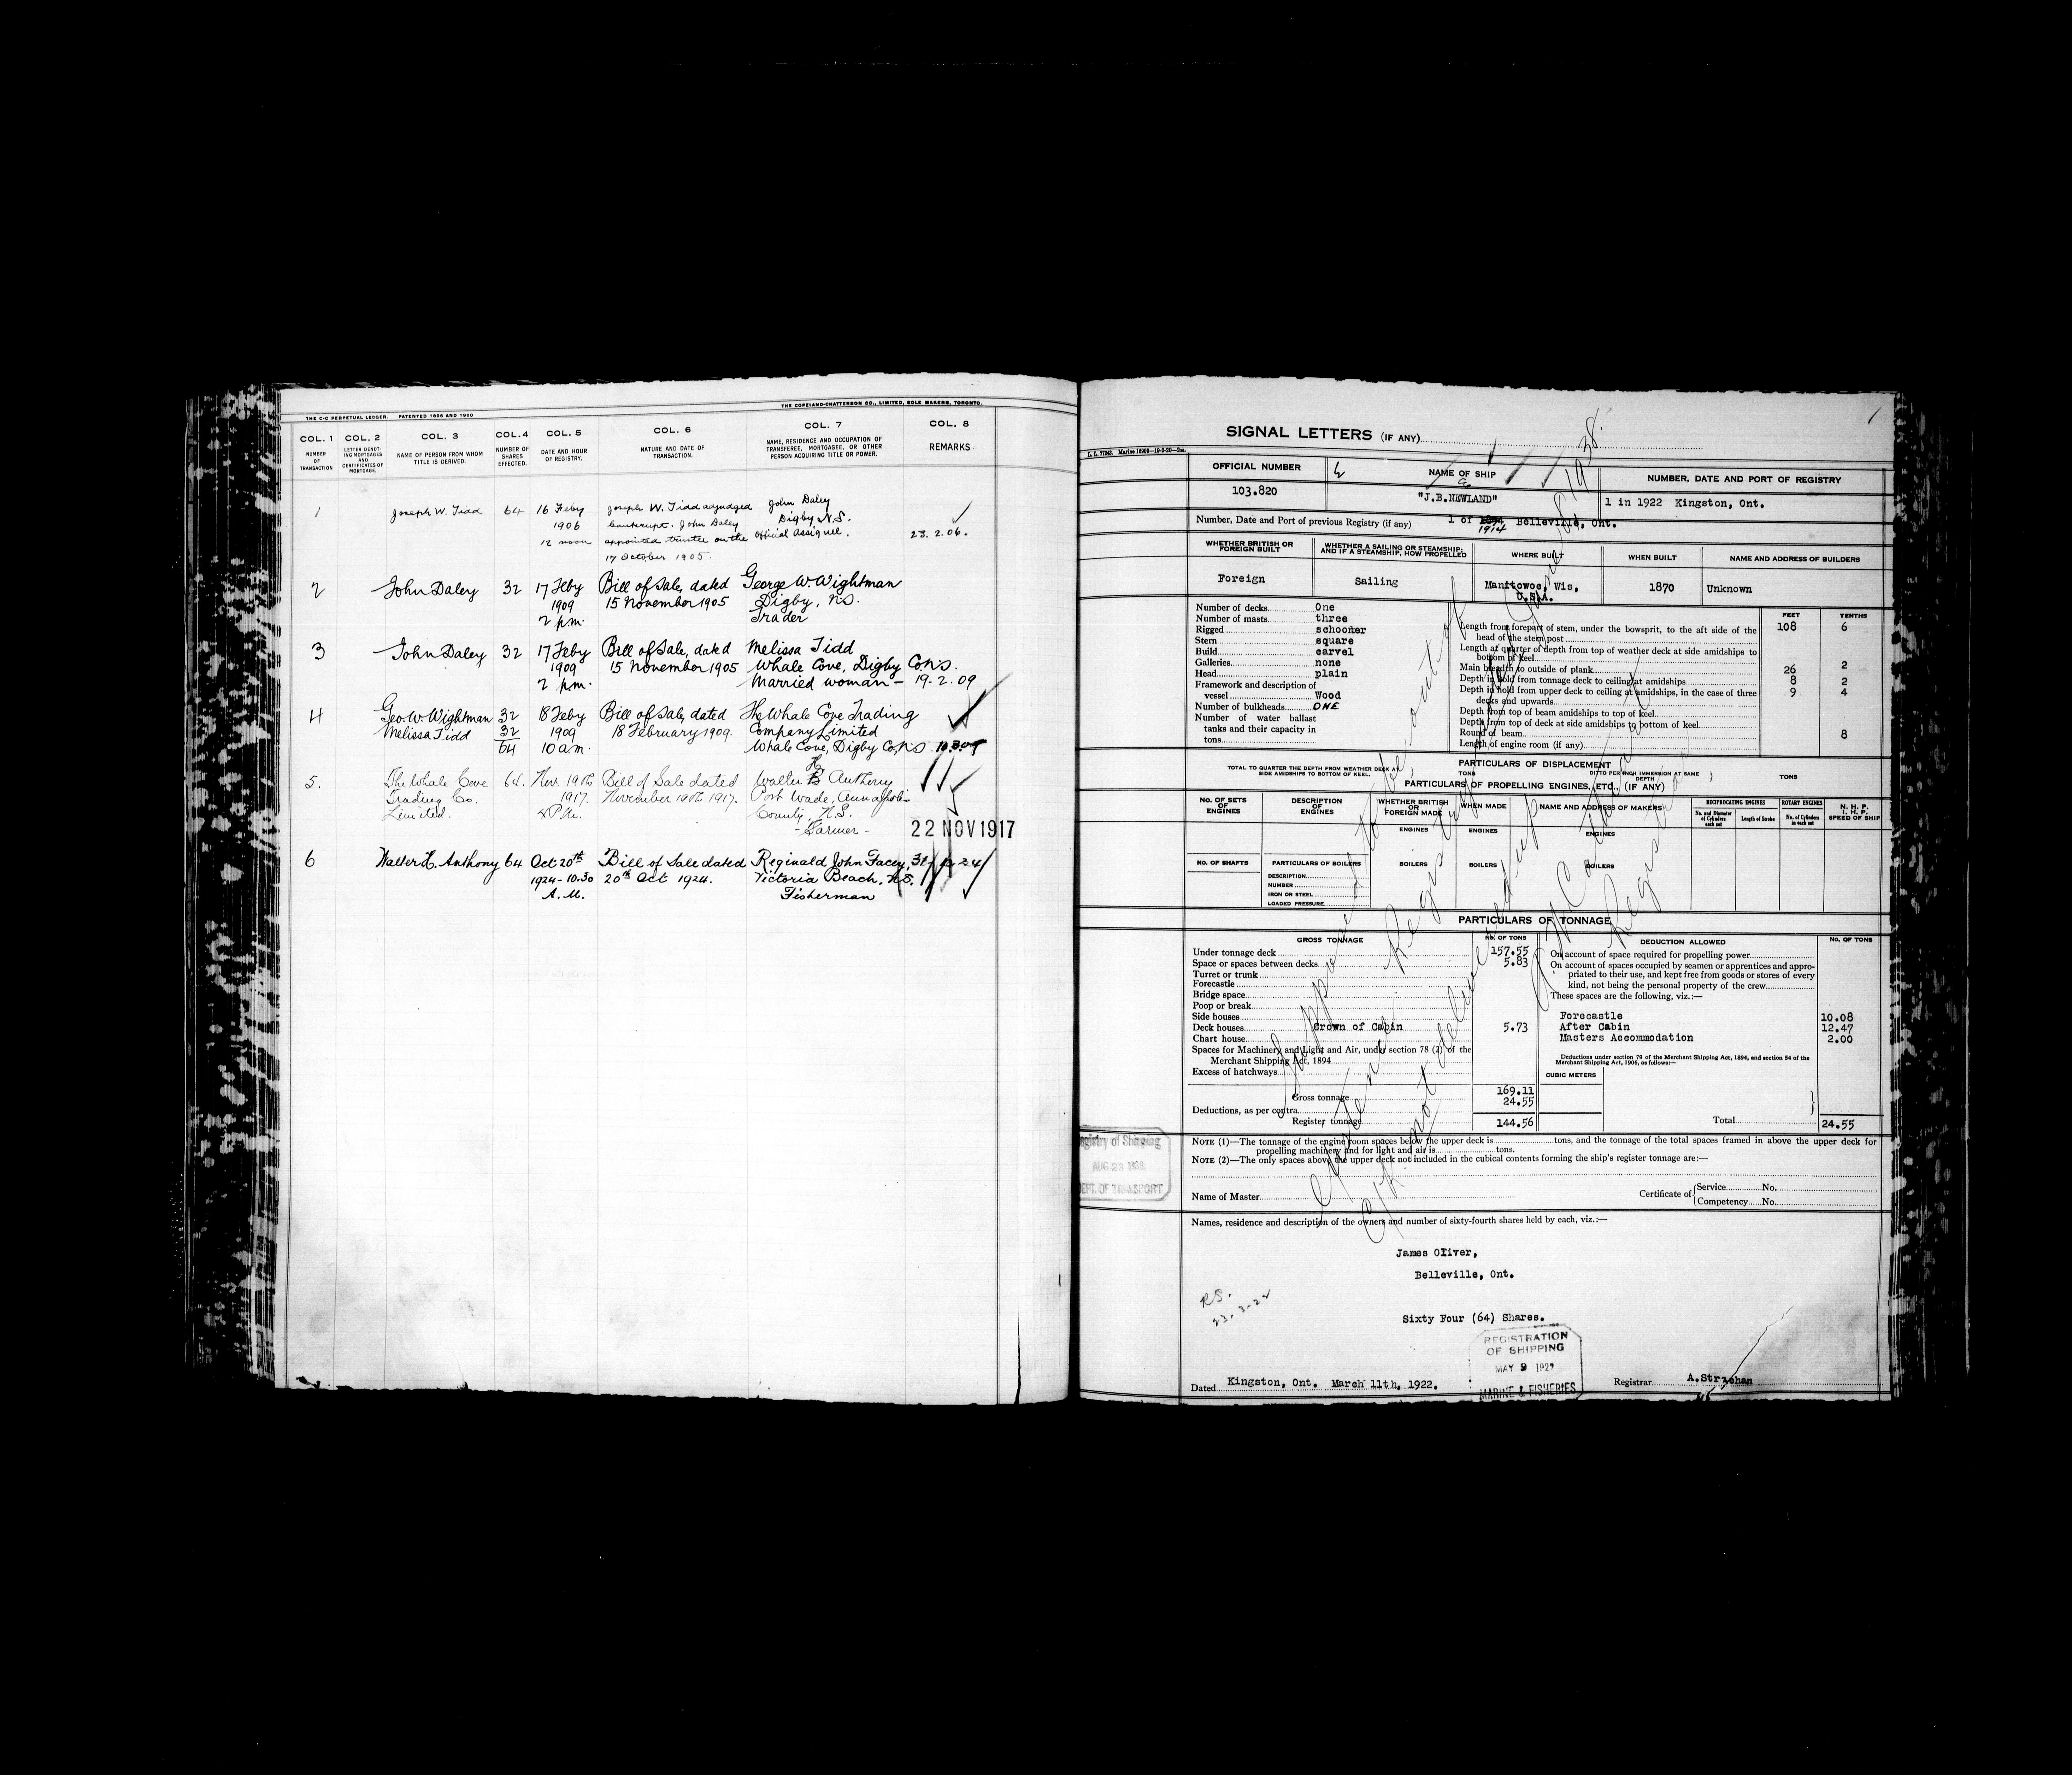 THE C-C PERPETUAL LEDGER. PATENTED 1896 AND 1900
THE COPELAND-CHATTERSON CO., LIMITED, SOLE MAKERS, TORONTO.
COL. 1 COL. 2 COL. 3 COL. 4 COL. 5 COL. 6 COL. 7 COL. 8
NUMBER OF TRANSACTION
LETTER DENOTING MORTGAGES AND CERTIFICATES OF MORTGAGE.
NAME OF PERSON FROM WHOM TITLE IS DERIVED.
NUMBER OF SHARES EFFECTED.
DATE AND HOUR OF REGISTRY.
NATURE AND DATE OF TRANSACTION.
NAME, RESIDENCE AND OCCUPATION OF TRANSFEREE, MORTGAGEE, OR OTHER PERSON ACQUIRING TITLE OR POWER.
REMARKS
1 Joseph W. Tidd 64 16 Feby Joseph W. Tidd adjudged John Daley
1906 bankrupt. John Daley Digby N.S.
12 noon appointed trustee on the Official Assignee. 23.2.06.
17 October 1905.
2 John Daley 32 17 Feby Bill of Sale, dated George W. Wightman
1909 15 November 1905 Digby, N.S.
2 p.m. Trader
3 John Daley 32 17 Feby Bill of Sale, dated Melissa Tidd
1909 15 November 1905 Whale Cove, Digby Co. N.S.
2 p.m. Married woman - 19-2.09
4 Geo. W. Wightman 32 18 Feby Bill of Sale, dated The Whale Cove Trading
Melissa Tidd 32 1909 18 February 1909. Company Limited
64 10 a.m. Whale Cove, Digby Co, N.S
5. The Whale Cove 64. Nov. 19th Bill of Sale dated Walter H. Anthony
Trading Co. 1917. November 19th 1917. Port Wade, Annapolis
Limited. County, N.S.
- Farmer - 22 NOV 1917
6 Walter H. Anthony 64 Oct 20th Bill of Sale dated Reginald John Facey,
1924-10.30 20th Oct 1924. Victoria Beach, N.S.
A.M. Fisherman
SIGNAL LETTERS (IF ANY)
L. L. 77243. Marine 16909—19-3-20—2M.
OFFICIAL NUMBER NAME OF SHIP NUMBER, DATE AND PORT OF REGISTRY
103.820 "J.B.NEWLAND" 1 in 1922 Kingston, Ont.
Number, Date and Port of previous Registry (if any) 1 of 1894 Belleville, Ont.
1914
WHETHER BRITISH OR FOREIGN BUILT
WHETHER A SAILING OR STEAMSHIP; AND IF A STEAMSHIP, HOW PROPELLED
WHERE BUILT WHEN BUILT NAME AND ADDRESS OF BUILDERS
Foreign Sailing Manitowoc, Wis, U.S.A. 1870 Unknown
Number of decks One
Number of masts three
Rigged schooner
Stern square
Build carvel
Galleries none
Head plain
Framework and description of vessel Wood
Number of bulkheads ONE
Number of water ballast tanks and their capacity in tons
FEET TENTHS
Length from forepart of stem, under the bowsprit, to the aft side of the head of the stern post 108 6
Length at quarter of depth from top of weather deck at side amidships to bottom of keel
Main breadth to outside of plank 26 2
Depth in hold from tonnage deck to ceiling at amidships 8 2
Depth in hold from upper deck to ceiling at amidships, in the case of three decks and upwards 9 4
Depth from top of beam amidships to top of keel
Depth from top of deck at side amidships to bottom of keel
Round of beam 8
Length of engine room (if any)
PARTICULARS OF DISPLACEMENT
TOTAL TO QUARTER THE DEPTH FROM WEATHER DECK AT SIDE AMIDSHIPS TO BOTTOM OF KEEL. TONS DITTO PER INCH IMMERSION AT SAME DEPTH TONS
PARTICULARS OF PROPELLING ENGINES, ETC., (IF ANY)
NO. OF SETS OF ENGINES
DESCRIPTION OF ENGINES
WHETHER BRITISH OR FOREIGN MADE
WHEN MADE
NAME AND ADDRESS OF MAKERS
RECIPROCATING ENGINES
No. and Diameter of Cylinders each set
Length of Stroke
ROTARY ENGINES
No. of Cylinders in each set
N. H. P.
I. H. P.
SPEED OF SHIP
ENGINES ENGINES ENGINES
NO. OF SHAFTS PARTICULARS OF BOILERS BOILERS BOILERS BOILERS
DESCRIPTION
NUMBER
IRON OR STEEL
LOADED PRESSURE
PARTICULARS OF TONNAGE
GROSS TONNAGE NO. OF TONS DEDUCTION ALLOWED NO. OF TONS
Under tonnage deck 157.55
Space or spaces between decks 5.83
Turret or trunk
Forecastle
Bridge space
Poop or break
Side houses
Deck houses Crown of Cabin 5.73
Chart house
Spaces for Machinery and Light and Air, under section 78 (2) of the Merchant Shipping Act, 1894
Excess of hatchways
Gross tonnage 169.11
Deductions, as per contra 24.55
Register tonnage 144.56
On account of space required for propelling power
On account of spaces occupied by seamen or apprentices and appropriated to their use, and kept free from goods or stores of every kind, not being the personal property of the crew
These spaces are the following, viz.:—
Forecastle 10.08
After Cabin 12.47
Masters Accommodation 2.00
Deductions under section 79 of the Merchant Shipping Act, 1894, and section 54 of the Merchant Shipping Act, 1906, as follows:—
CUBIC METERS
Total 24.55
NOTE (1)—The tonnage of the engine room spaces below the upper deck is tons, and the tonnage of the total spaces framed in above the upper deck for propelling machinery and for light and air is tons.
NOTE (2)—The only spaces above the upper deck not included in the cubical contents forming the ship's register tonnage are:—
Name of Master Certificate of Service No.
Competency No.
Registry of Shipping
AUG 23 1938
DEPT. OF TRANSPORT
Names, residence and description of the owners and number of sixty-fourth shares held by each, viz.:—
James Oliver,
Belleville, Ont.
Sixty Four (64) Shares.
R.S.
23-3-22
REGISTRATION
OF SHIPPING
MAY 9 192
MARINE & FISHERIES
Dated Kingston, Ont. March 11th, 1922. Registrar A.Strachan
Supposed to be out of
Register
not delivered up
Registrar